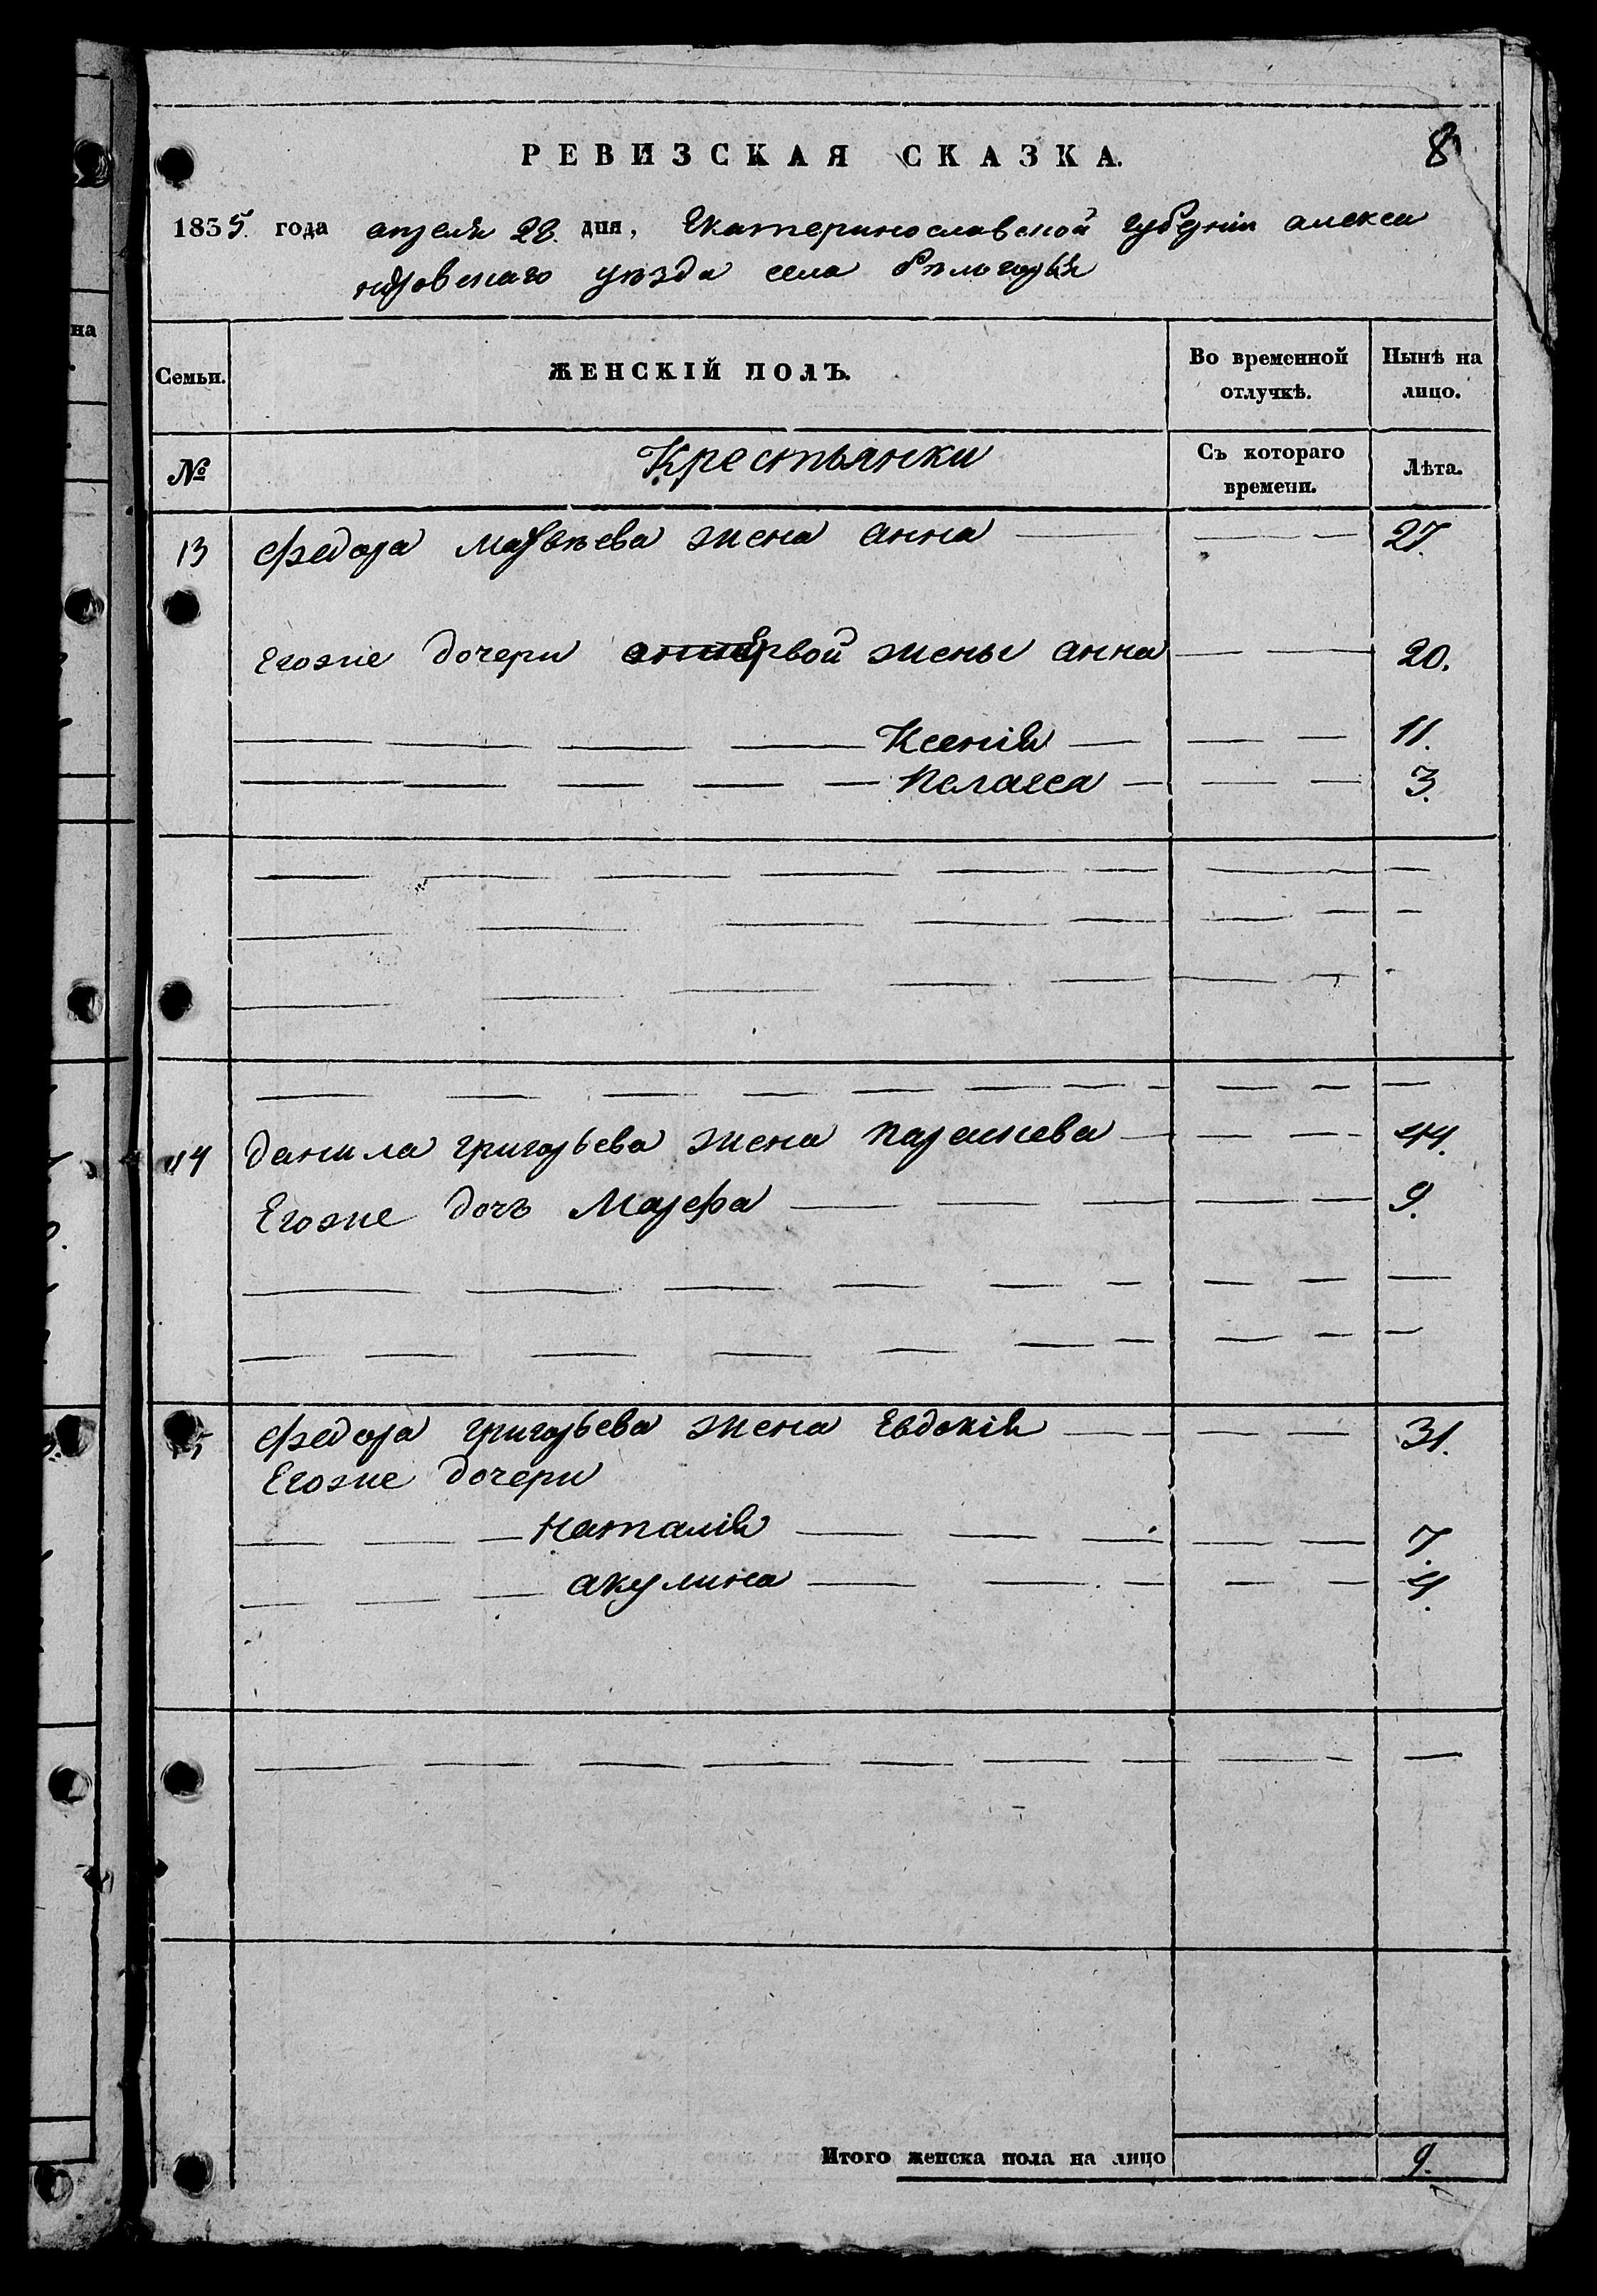 на
РЕВИЗСКАЯ СКАЗКА.
8
1855. года апреля 28. дня, Екатеринославской губерніи алекса
ндровскаго уѣзда села бѣлогорья
Семьи.
ЖЕНСКІЙ ПОЛЪ.
Во временной отлучкѣ.
Нынѣ на лицо.
№
Крестьянки
Съ котораго времени.
Лѣта.
13 Федора Матвѣева жена анна 27.
Егоже дочери первой жены анна 20.
Ксенія 11.
Пелагея 3.
14 Данила григорьева жена параскева 44.
Егоже дочь Марфа 9.
15 Федора григорьева жена Евдокія 31.
Егоже дочери
Наталія 7.
акулина 4.
Итого женска пола на лицо 9.